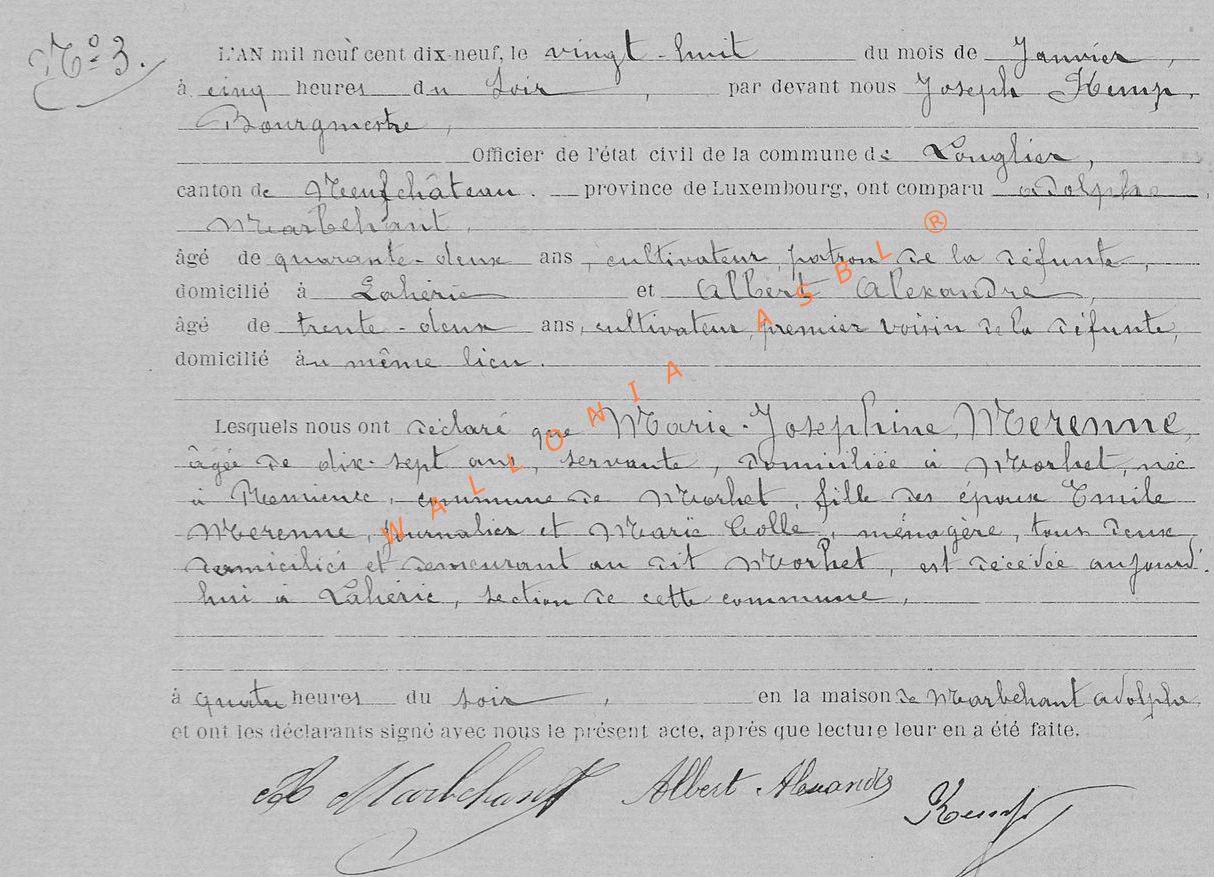 N° 3.
L'AN mil neuf cent dix-neuf, le vingt-huit du mois de Janvier,
à cinq heures du Soir, par devant nous Joseph Kemp,
Bourgmestre,
Officier de l'état civil de la commune de Longlier,
canton de Neufchâteau. province de Luxembourg, ont comparu Adolphe
Marbehant,
âgé de quarante-deux ans, cultivateur, patron de la défunte,
domicilié à Lahérie et Albert Alexandre,
âgé de trente-deux ans, cultivateur, premier voisin de la défunte,
domicilié au même lieu.
Lesquels nous ont déclaré que Marie-Joséphine Merenne,
âgée de dix-sept ans, servante, domiciliée à Morhet, née
à Remience, commune de Morhet, fille des époux Emile
Merenne, journalier et Marie Colle, ménagère, tous deux
domiciliés et demeurant au dit Morhet, est décédée aujourd'
hui à Lahérie, section de cette commune,
à quatre heures du soir, en la maison de Marbehant Adolphe
et ont les déclarants signé avec nous le présent acte, après que lecture leur en a été faite.
Marbehant Albert Alexandre Kemp
WALLONIA ASBL ®